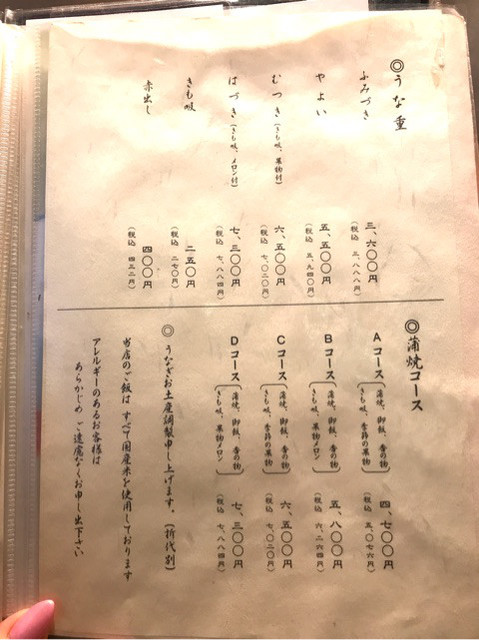 ◎うな重
ふみづき 三、六〇〇円
(税込 三、八八八円)
やよい 五、五〇〇円
(税込 五、九四〇円)
むつき(きも吸、果物付) 六、五〇〇円
(税込 七、〇二〇円)
はづき(きも吸、メロン付) 七、三〇〇円
(税込 七、八八四円)
きも吸 二五〇円
(税込 二七〇円)
赤出し 四〇〇円
(税込 四三二円)
◎蒲焼コース
Aコース(蒲焼、御飯、香の物
きも吸、季節の果物) 四、七〇〇円
(税込 五、〇七六円)
Bコース(蒲焼、御飯、香の物
きも吸、果物メロン) 五、八〇〇円
(税込 六、二六四円)
Cコース(蒲焼、御飯、香の物
きも吸、季節の果物) 六、五〇〇円
(税込 七、〇二〇円)
Dコース(蒲焼、御飯、香の物
きも吸、果物メロン) 七、三〇〇円
(税込 七、八八四円)
◎うなぎお土産調製申し上げます。(折代別)
当店のご飯は すべて国産米を使用しております
アレルギーのあるお客様は
あらかじめ ご遠慮なくお申し出下さい